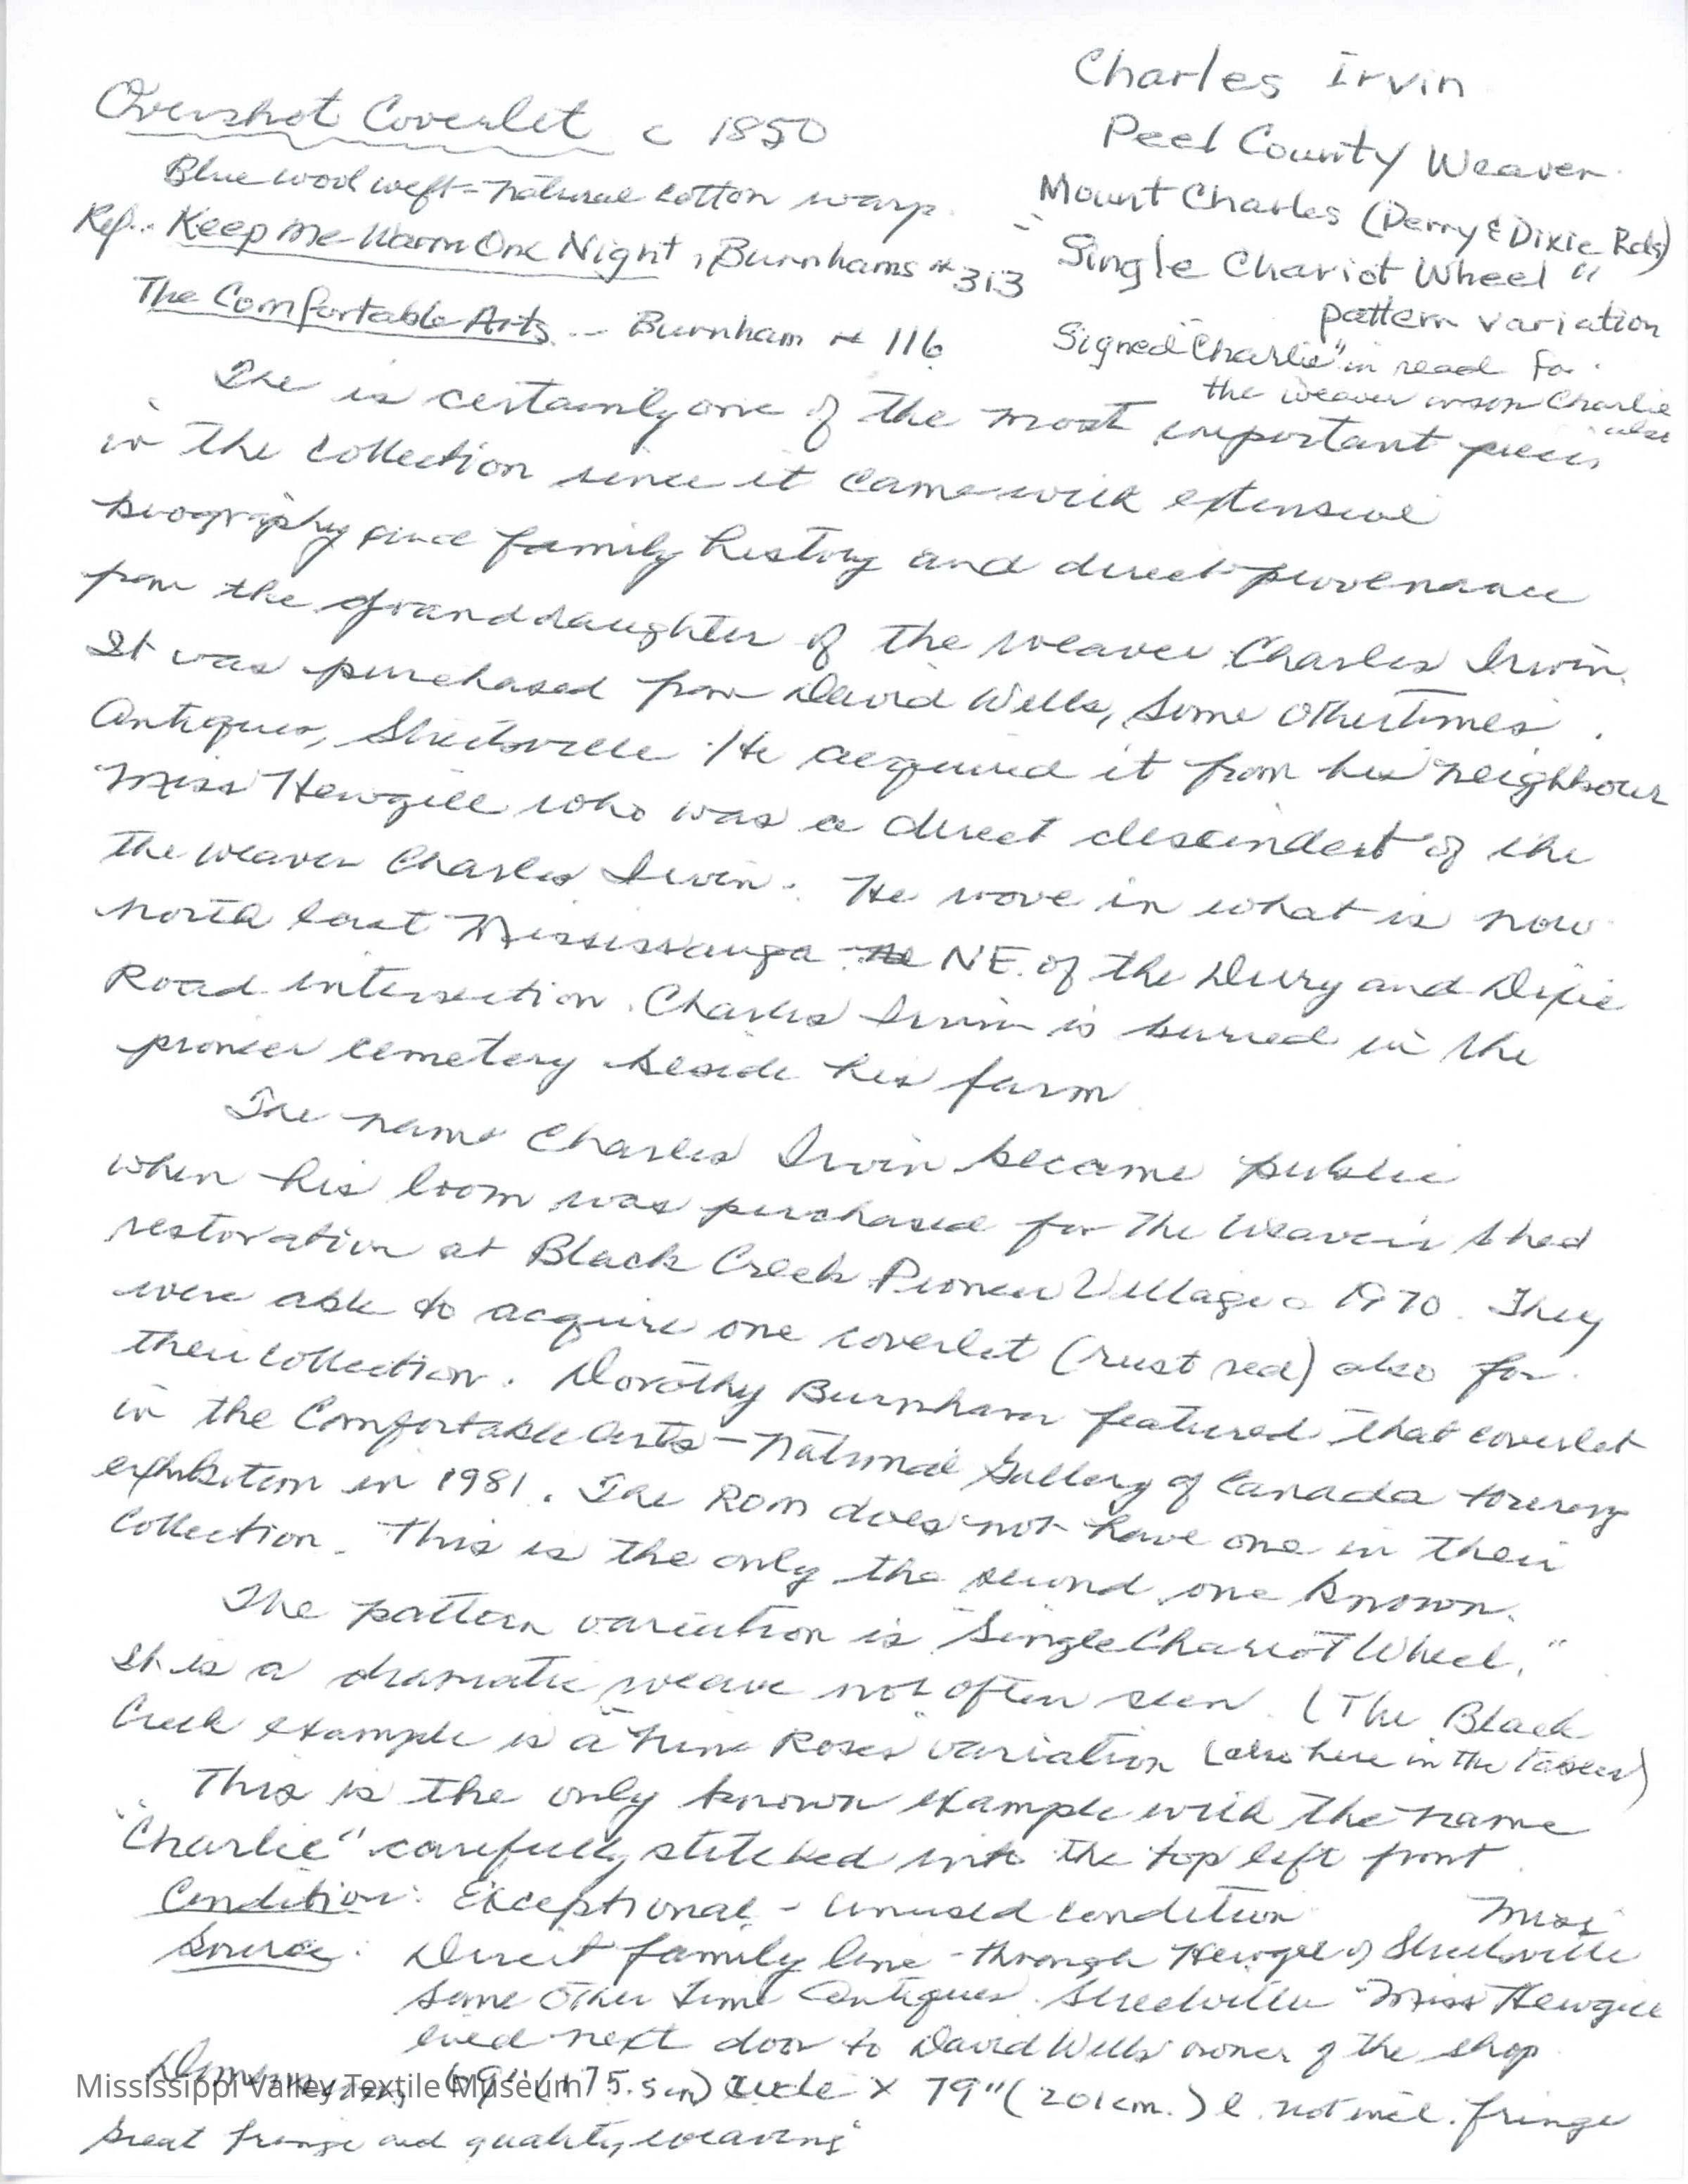 Charles Irvin
Peel County Weaver
Mount Charles (Derry & Dixie Rds)
"Single Chariot Wheel"
pattern variation
Signed "Charlie" in read for
the weaver or son Charlie
also
Overshot Coverlet c 1850
Blue wool weft - natural cotton warp.
Ref.. Keep Me Warm One Night, Burnhams # 313
The Comfortable Arts -- Burnham # 116
The is certainly one of the most important pieces
in the collection since it came with extensive
biography and family history and direct provenance
from the granddaughter of the weaver Charles Irvin.
It was purchased from David Wells, Some Othertimes
Antiques, Streetsville. He acquired it from his neighbour
Miss Hewgill who was a direct descendent of the
the weaver Charles Irvin. He wove in what is now
north east Mississauga - NE. of the Derry and Dixie
Road intersection. Charles Irvin is burried in the
pioneer cemetery beside his farm
The name Charles Irvin became public
when his loom was purchased for The Weaver's Shed
restoration at Black Creek Pioneer Village c 1970. They
were able to acquire one coverlet (rust red) also for
their collection. Dorothy Burnham featured that coverlet
in the Comfortable Arts - National Gallery of Canada touring
exhibition in 1981. The ROM does not have one in their
collection. This is the only the second one known.
The pattern variation is "Single Chariot Wheel."
It is a dramatic weave not often seen. (The Black
Creek example is a "Nine Roses" variation (also here in the )
This is the only known example with the name
"Charlie" carefully stitched into the top left front.
Condition: Exceptional - unused condition
Source: Direct family line - through Miss Hewgill of Streetsville
Some Other Time Antiques. Streetsville Miss Hewgill
lived next door to David Wells owner of the shop
Dimensions 69" (175.5 cm) wide x 79" (201 cm.) l. not incl. fringe
Great fringe and quality weaving
Mississippi Valley Textile Museum